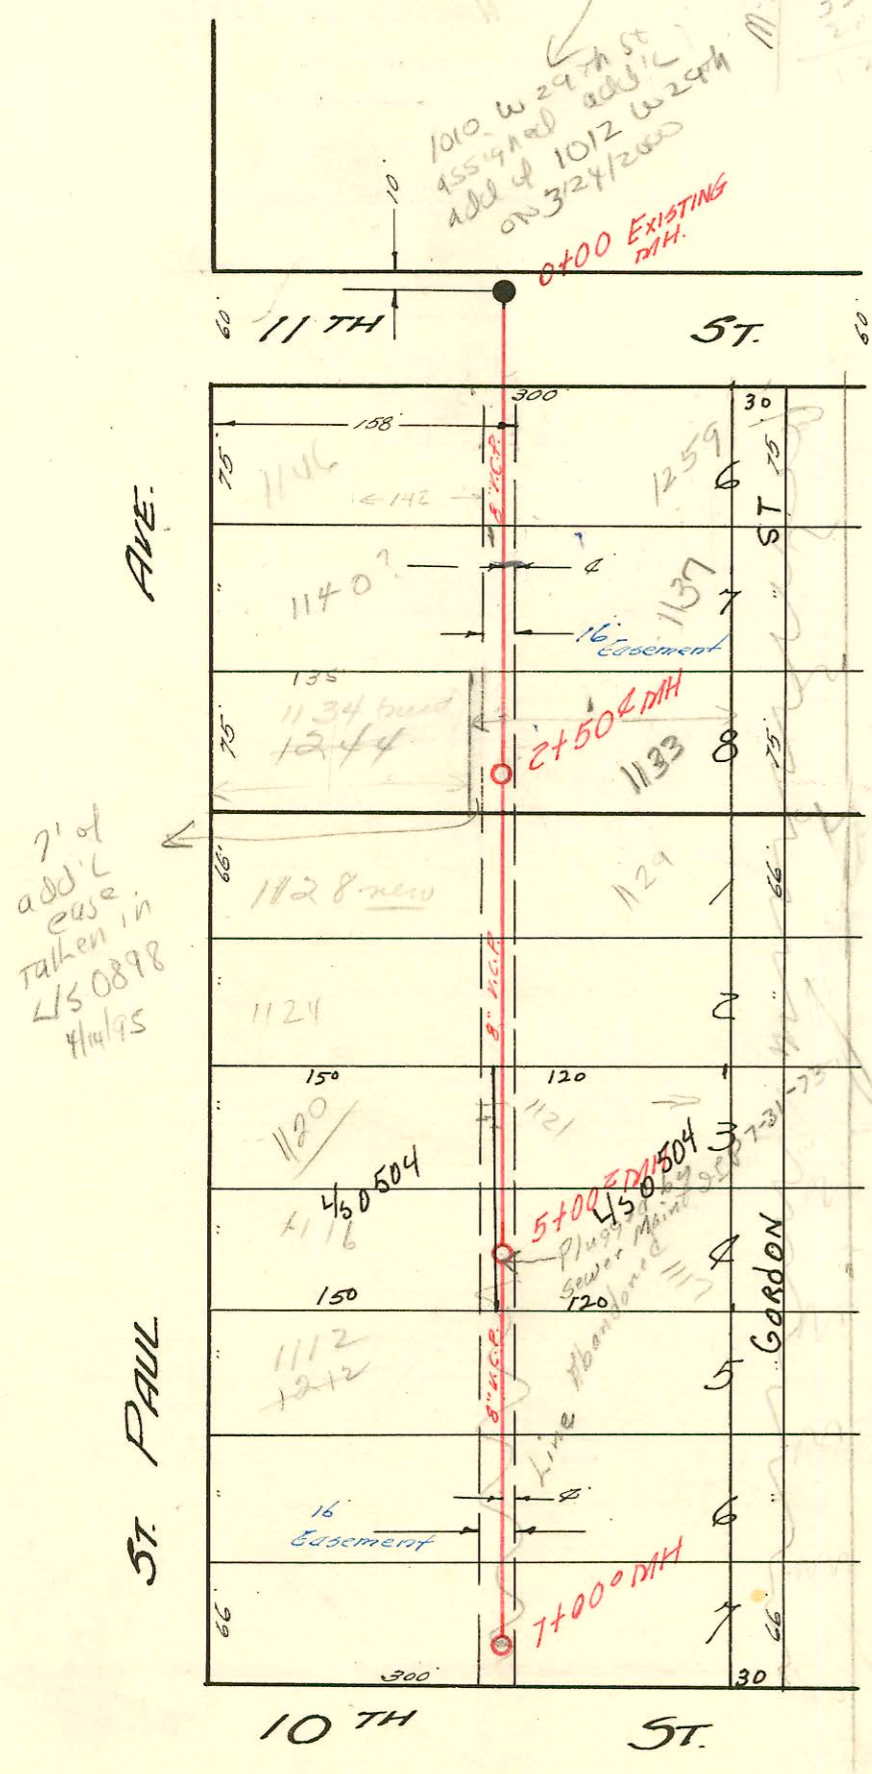 1010 W 29th St
assigned add'l
add of 1012 W 29th
on 3/24/2000
10'
0+00 EXISTING
MH.
60'
11 TH ST.
60'
300'
30
158'
75'
1146
142
8" V.C.P.
1259
6
75'
ST
AVE.
1140?
4'
1137
7
"
"
16'
Easement
135'
1134
1244
75'
2+50 MH
1133
8
75'
7' of
add'l
ease.
Taken in
LS 0898
4/14/95
66'
1128 new
1129
1
66'
1124
8" V.C.P.
2
"
"
150
120
1120
1121
3
"
LS 0504
1116
5+00 MH
LS 0504
Plugged by
Sewer Maint 7-31-73
Line Abandoned
4
"
1117
GORDON
150
120
1112
1212
8" V.C.P.
5
"
"
ST. PAUL
4'
16'
Easement
6
"
"
7+00 MH
66'
7
66'
300'
30
10 TH ST.